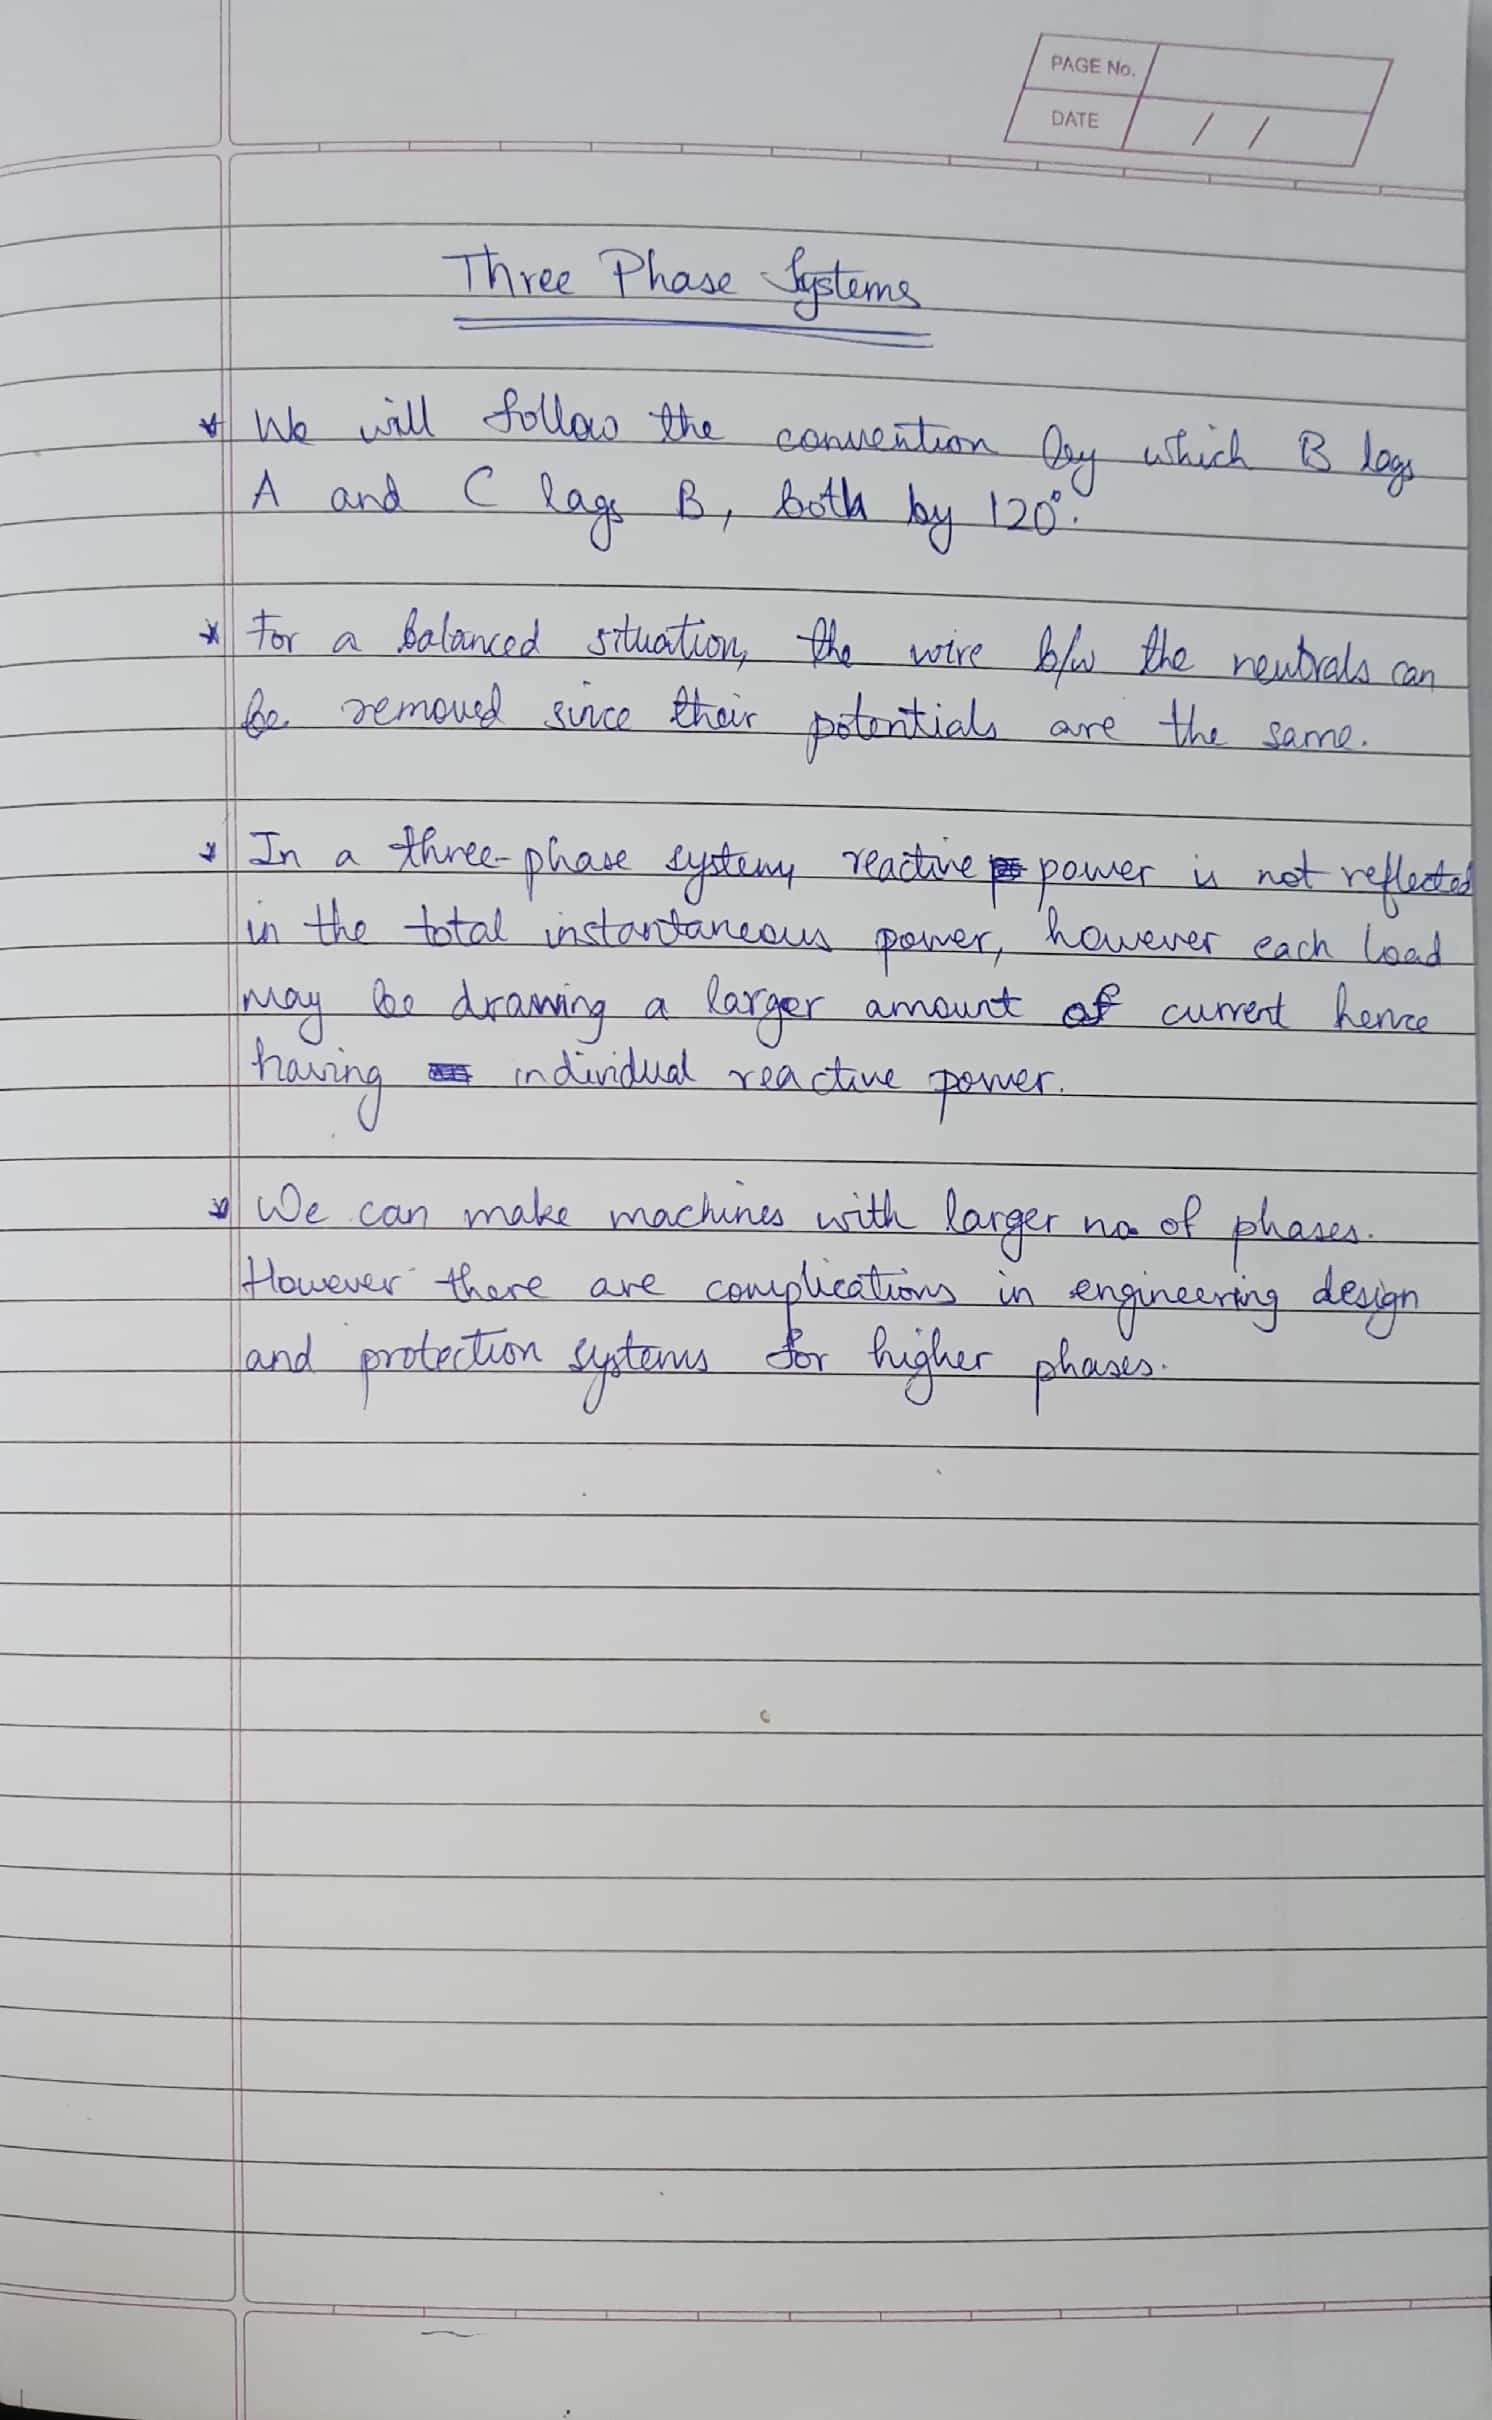 PAGE No.
DATE / /
Three Phase Systems
* We will follow the convention by which B lags
A and C lags B, both by 120°.
* For a balanced situation, the wire b/w the neutrals can
be removed since their potentials are the same.
* In a three-phase system, reactive power is not reflected
in the total instantaneous power, however each load
may be drawing a larger amount of current hence
having individual reactive power.
* We can make machines with larger no of phases.
However there are complications in engineering design
and protection systems for higher phases.